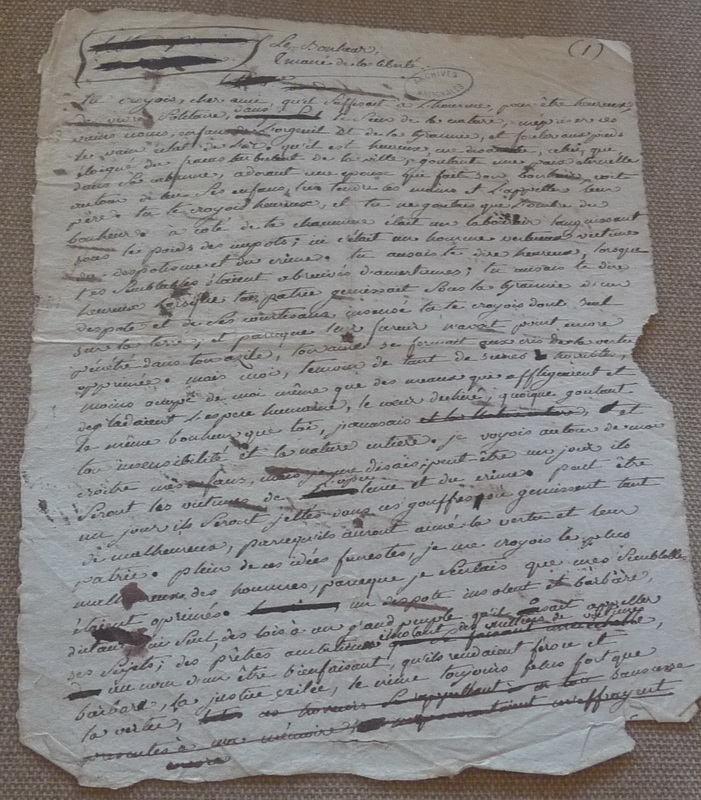 Le Bonheur,
Emané de la liberté
(1)
ARCHIVES NATIONALES
tu croyois, cher ami, qu'il suffisoit à l'homme, pour être heureux,
de vivre solitaire, dans le sein de la nature, mépriser ces
vains noms, enfans de l'orgueil et de la tyrannie, et fouler aux pieds
le vain éclat de l'or, qu'il est heureux, me disois celui, que
éloigné du fracas turbulent de la ville, goutant une paix éternelle
dans sa cabanne, adorant une épouse que fait son bonheur, voit
autour de lui ses enfans, lui tendre les mains et l'appeller leur
père. tu te croyois heureux, et tu ne goutois que l'ombre du
bonheur. à coté de ta chaumière étoit un laboureur languissant
sous le poids des impots; ici c'était un homme vertueux victime
du despotisme et du crime. tu ausois te dire heureux, lorsque
tes semblables étaient abreuvés d'amertumes; tu ausois te dire
heureux lorsque ta patrie gemissoit sous la tyrannie d'un
despote et de ses courtisans insensé tu te croyois donc seul
sur la terre, et parceque leur fureur n'avoit point encore
pénétré dans ton azile, ton ame se fermoit aux cris de la vertu
opprimée. mais moi, temoin de tant de scènes horribles,
moins occupé de moi même que des maux que affligeoient et
degradaient l'espece humaine, le cœur déchiré, quoique goutant
le même bonheur que toi, et
ton insensibilité et la nature entiere. je voyois autour de moi
croitre mes enfans, mais je me disais; peut être un jour ils
seront les victimes de et du crime. peut être
un jour ils seront jettés dans ces gouffres ou gemissent tant
de malheureux, parcequ'ils auront aimé la vertu et leur
patrie. plein de ces idées funestes, je me croyois le plus
malheureux des hommes, parceque je sentais que mes semblables
étaient oprimés. un despote insolent et barbare,
dictant lui seul, des lois à un grand peuple qu'il osait appeller
ses sujets; des prêtres ambitieux immolant des milliers de victimes
au nom d'un être bienfaisant, qu'ils rendaient féroce et
barbare, la justice exilée, le crime toujours plus fort que
la vertu,
à ma mémoire, m'effrayent
encore